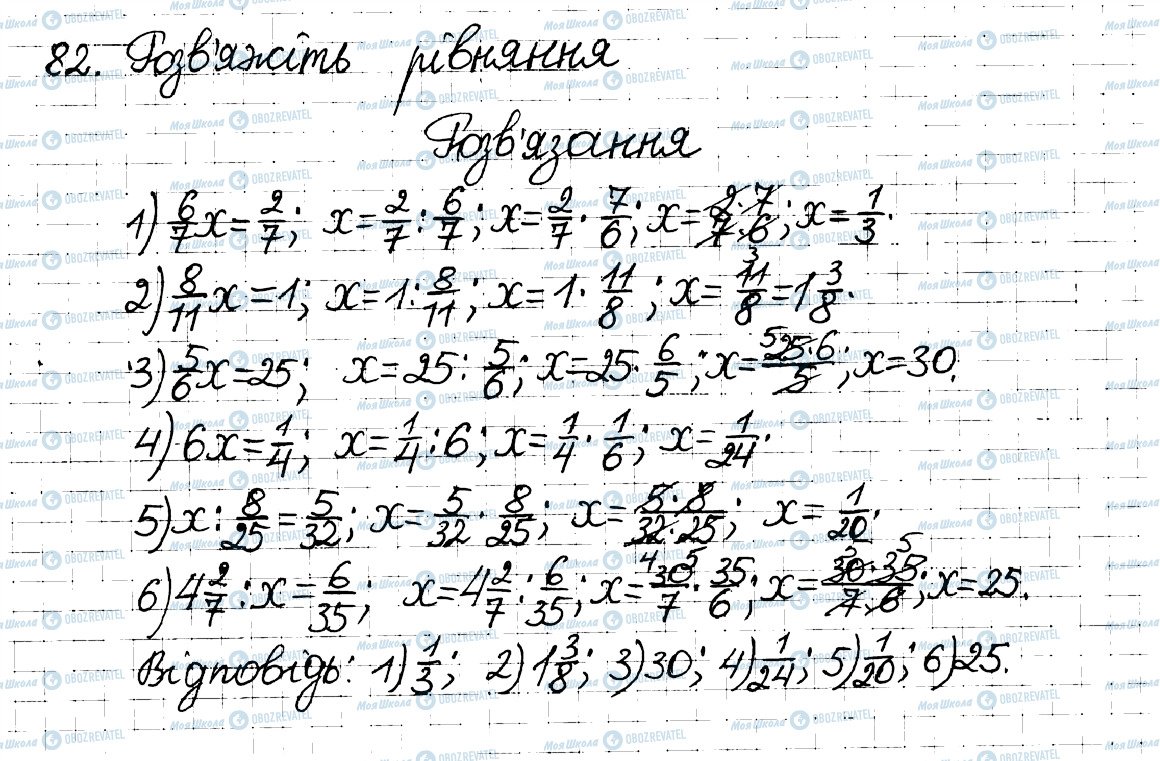 82. Розв'яжіть рівняння
Розв'язання
1) 6/7 x = 2/7; x = 2/7 : 6/7; x = 2/7 · 7/6; x = 2·7/7·6; x = 1/3.
2) 8/11 x = 1; x = 1 : 8/11; x = 1 · 11/8; x = 11/8 = 1 3/8.
3) 5/6 x = 25; x = 25 : 5/6; x = 25 · 6/5; x = 25·6/5; x = 30.
4) 6x = 1/4; x = 1/4 : 6; x = 1/4 · 1/6; x = 1/24.
5) x : 8/25 = 5/32; x = 5/32 · 8/25; x = 5·8/32·25; x = 1/20.
6) 4 2/7 : x = 6/35; x = 4 2/7 : 6/35; x = 30/7 · 35/6; x = 30·35/7·6; x = 25.
Відповідь: 1) 1/3; 2) 1 3/8; 3) 30; 4) 1/24; 5) 1/20; 6) 25.